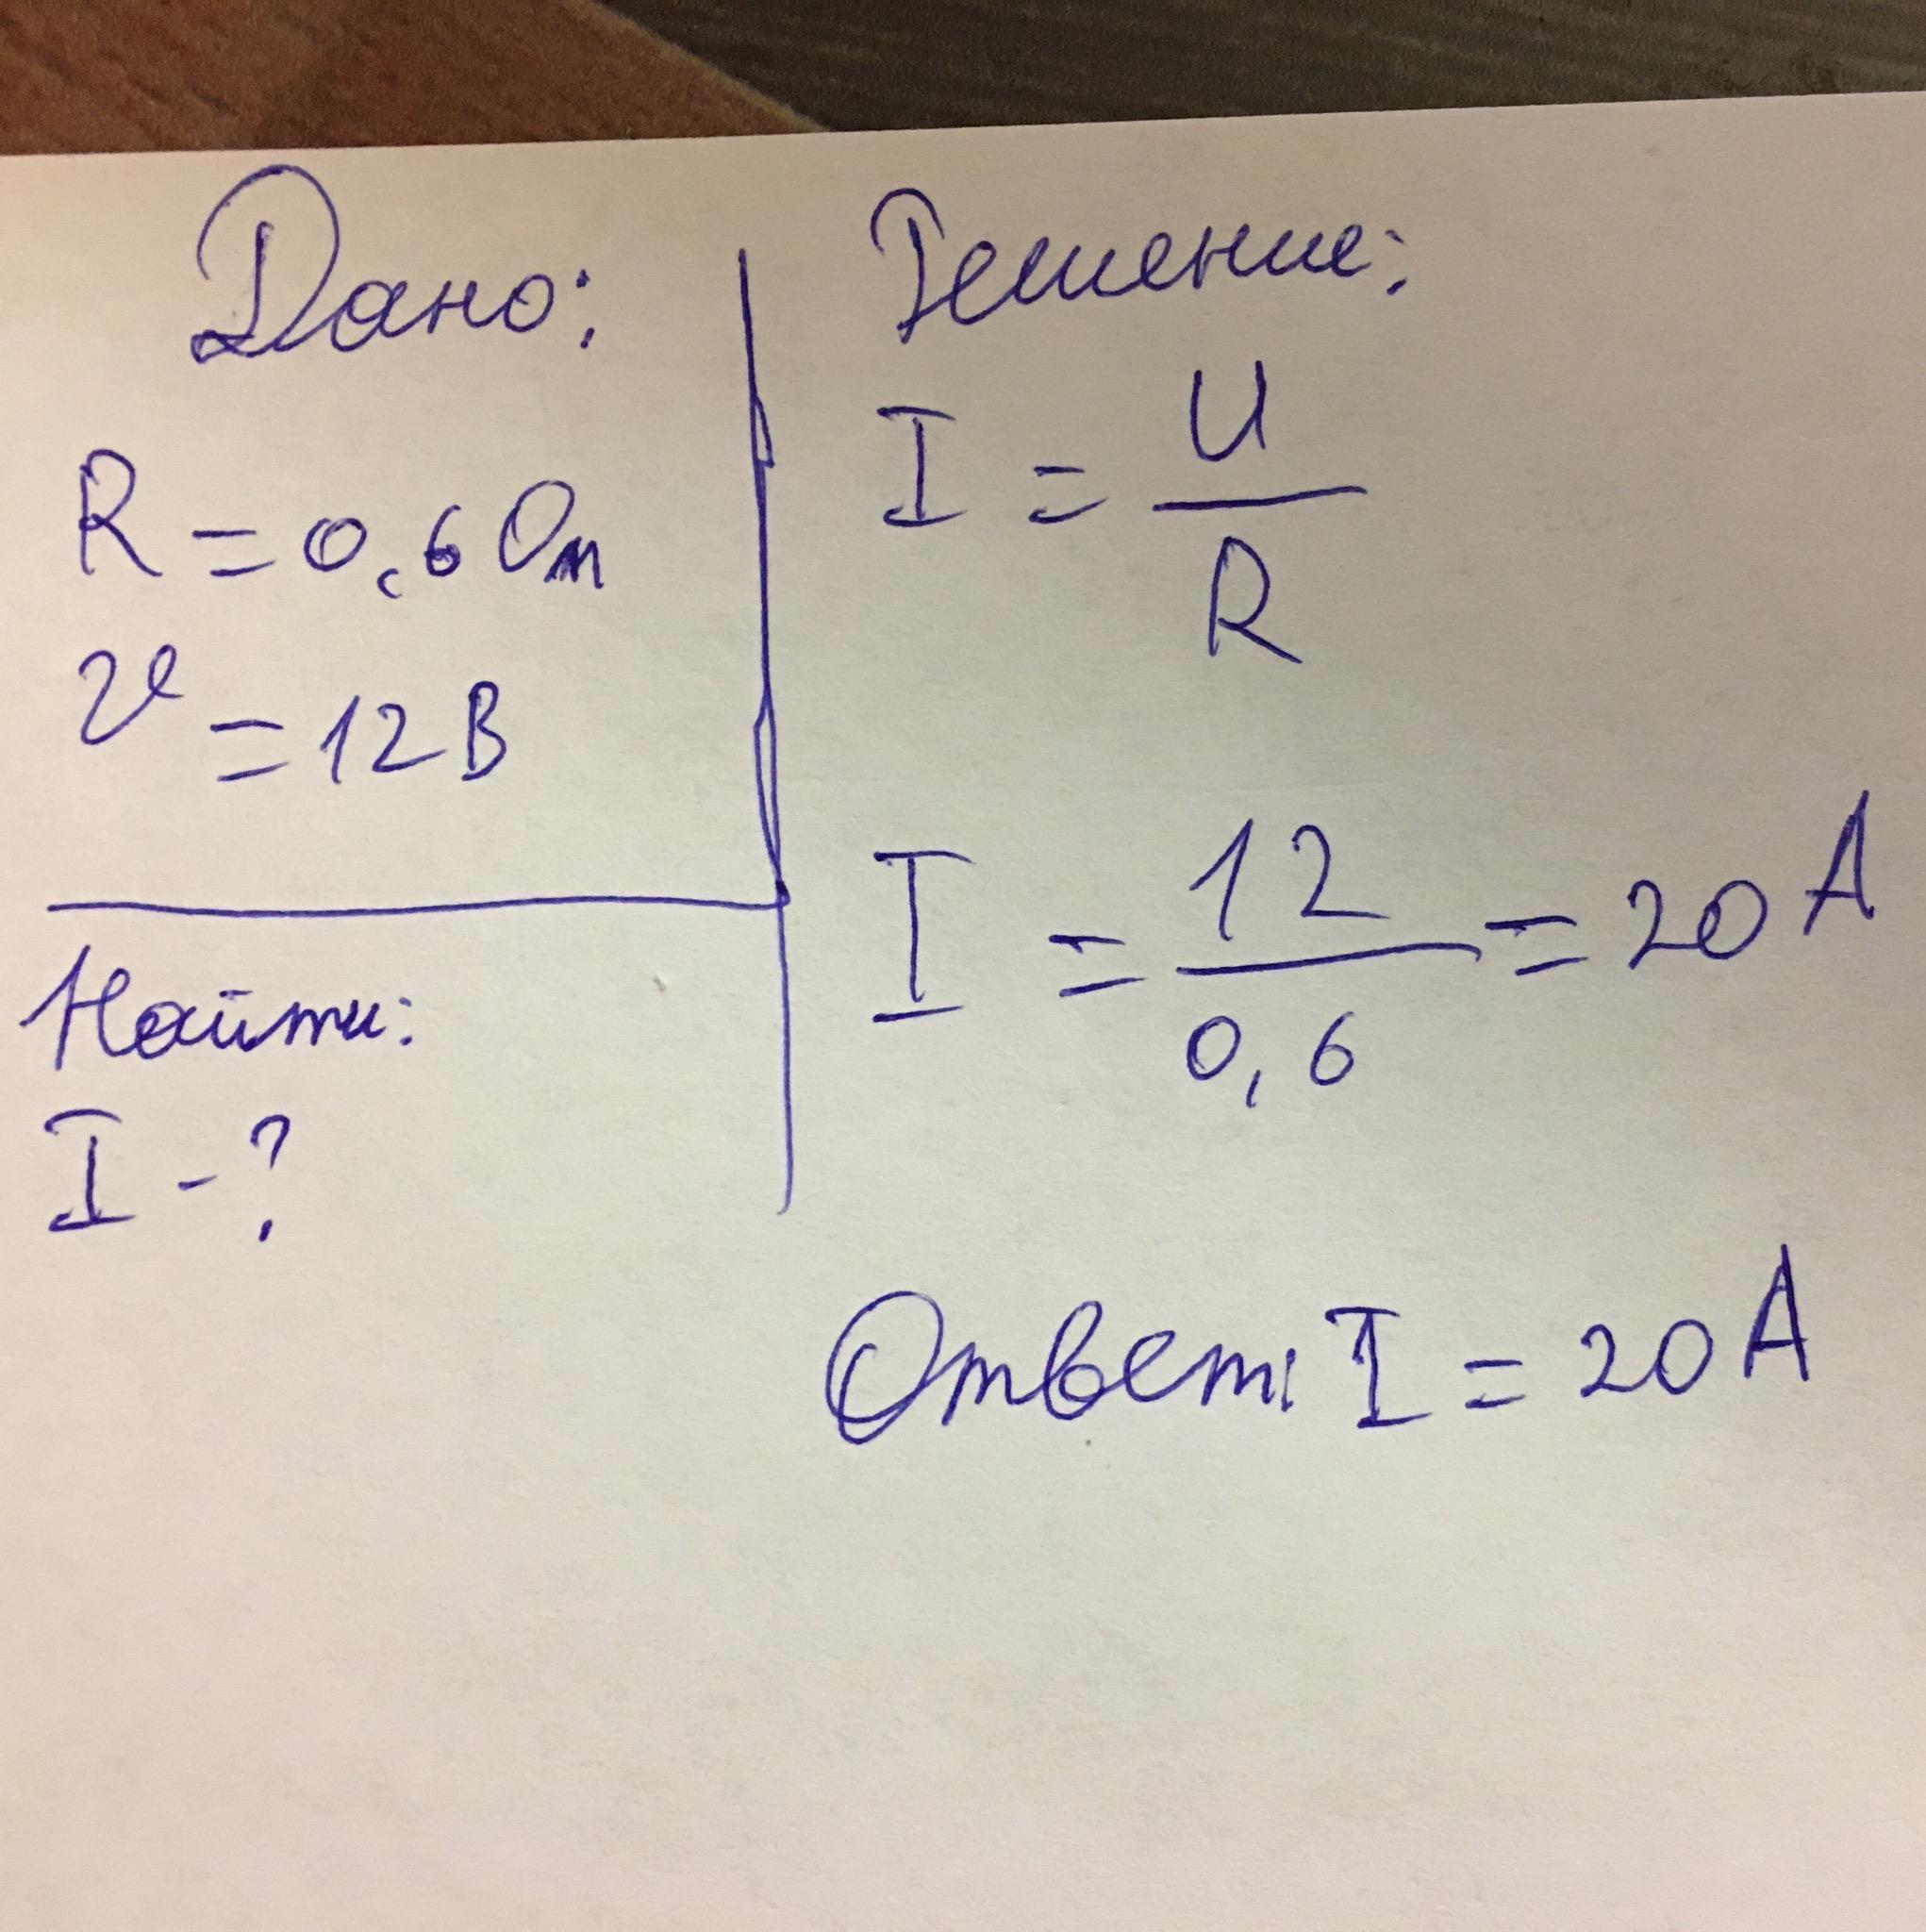 Дано:
R = 0,6 Ом
υ = 12 В
Найти:
I - ?
Решение:
I = U / R
I = 12 / 0,6 = 20 А
Ответ: I = 20 А